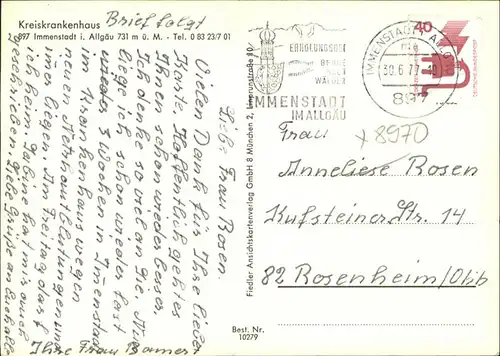 Kreiskrankenhaus
897 Immenstadt i. Allgäu 731 m ü. M. - Tel. 0 83 23/7 01
Brief folgt
Liebe Frau Rosen.
Vielen Dank für Ihre lieber
Karte. Hoffentlich geht es
Ihnen schon wieder besser.
Ich denke so viel an Sie. Nun
liege ich schon wieder fast
3 Wochen in Immenstadt
im Krankenhaus wegen
neuen Netzhautblutungen und
liegen. Im Freitag darf
ich heim. Sabine hat mir auch
geschrieben. Liebe Grüße an Euch alle
Ihre Frau
Fiedler Ansichtskartenverlag GmbH 8 München 2,
Best. Nr.
10279
ERHOLUNGSORT
BERGE
SEEN
WÄLDER
IMMENSTADT
IM ALLGÄU
IMMENSTADT, ALLGÄU
30.6.77
897
40
8970
Frau
Anneliese Rosen
Kufsteiner Str. 14
82 Rosenheim/Obb